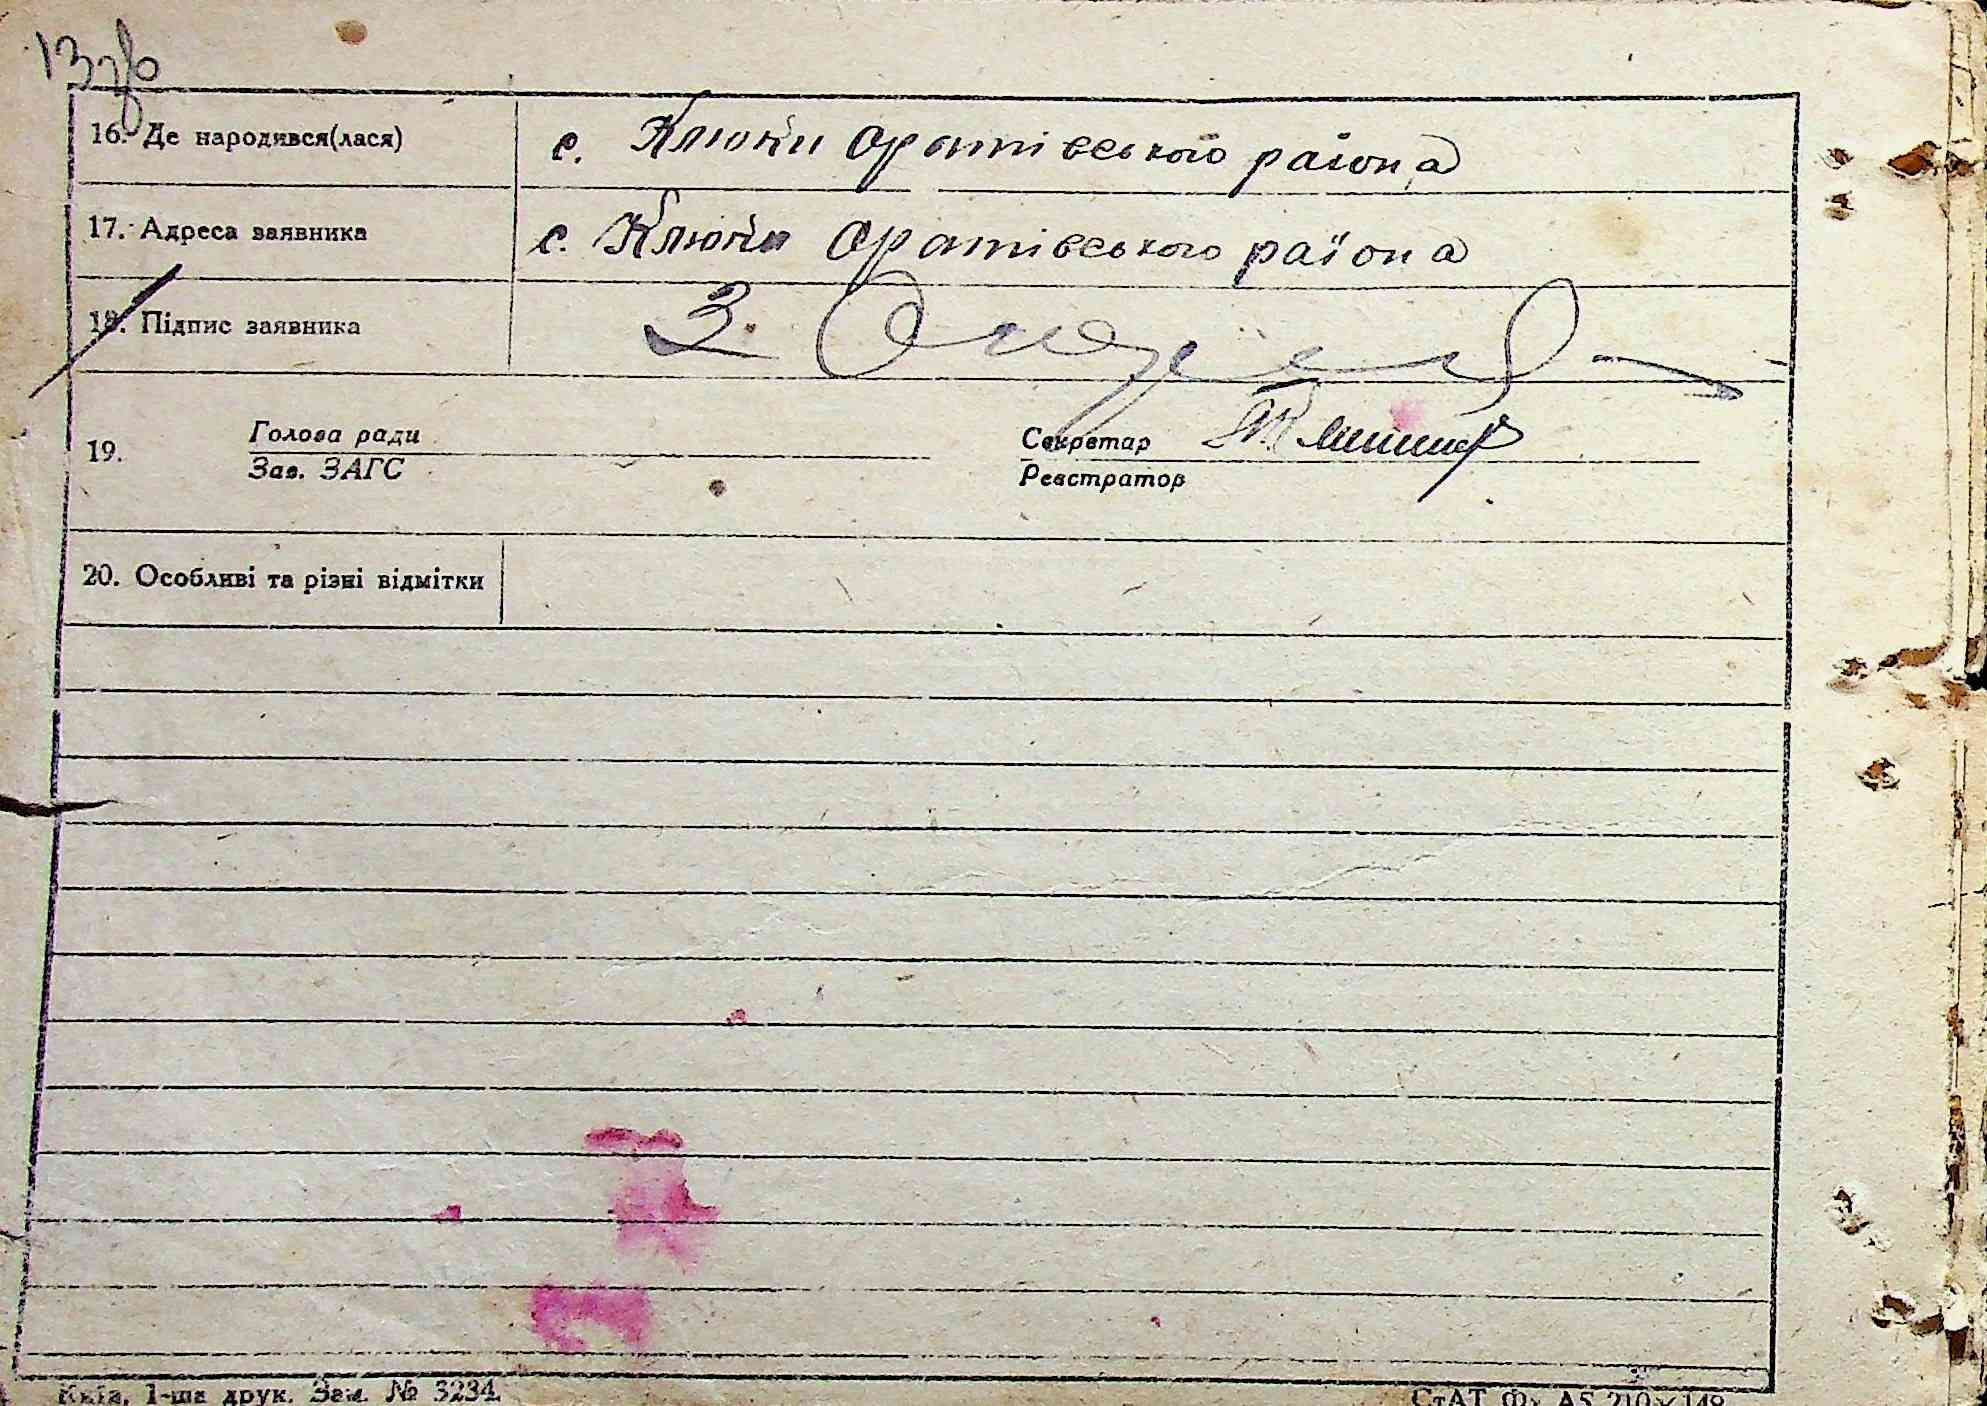 13 зв
16. Де народився(лася) с. Клюки Оратівського району
17. Адреса заявника с. Клюки Оратівського района
18. Підпис заявника З.
19. Голова ради Секретар
Зав. ЗАГС Реєстратор
20. Особливі та різні відмітки
Київ, 1-ша друк. Зам. № 3234. СтАТ Ф. А5 210×148